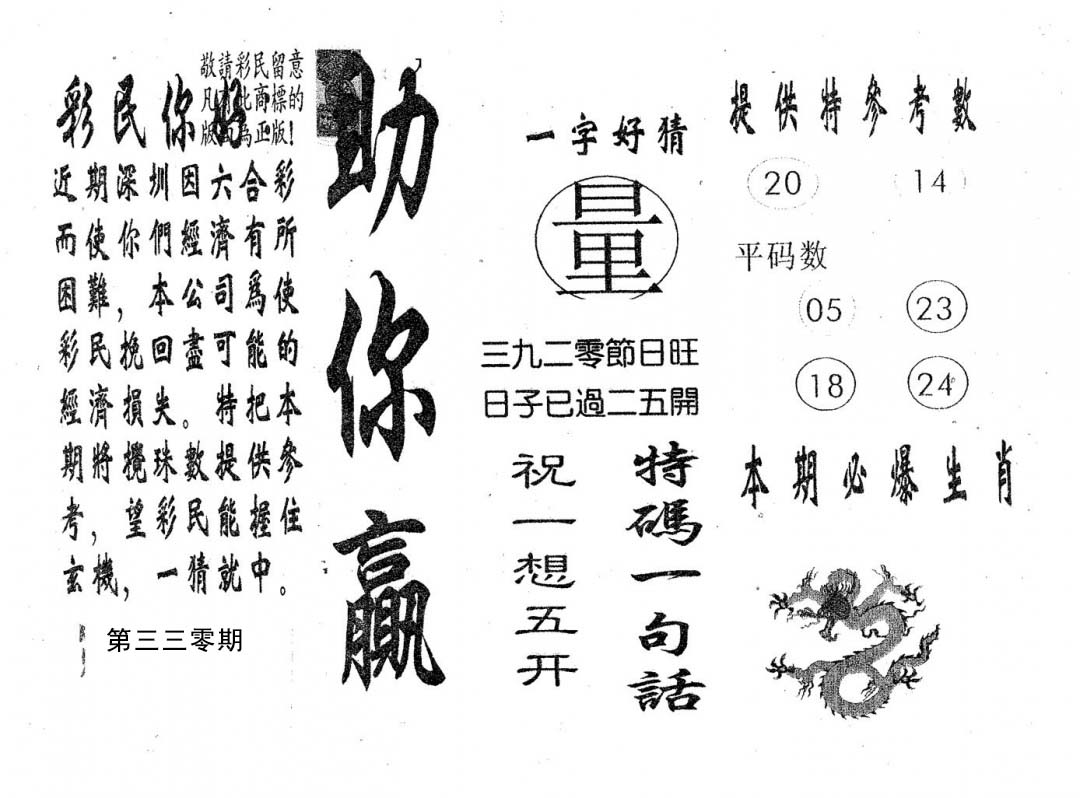 敬請彩民留意
凡有此商標的
版面為正版!
彩民你好
近期深圳因六合彩
而使你們經濟有所
困難，本公司爲使
彩民挽回盡可能的
經濟損失。特把本
期將攪珠數提供參
考，望彩民能握住
玄機，一猜就中。
第三三零期
助你贏
一字好猜
量
三九二零節日旺
日子已過二五開
特碼一句話
祝一想五开
提供特參考數
20 14
平码数
05 23
18 24
本期必爆生肖